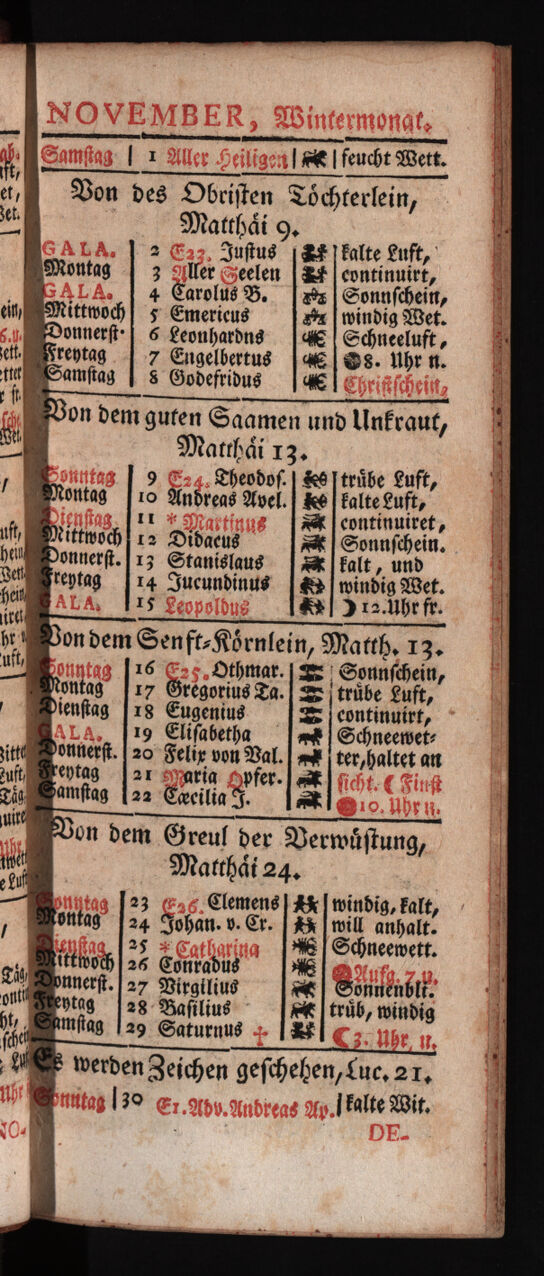 NOVEMBER, Wintermonat.
Samstag | 1 Aller Heiligen | feucht Wett.
Von des Obristen Töchterlein,
Matthäi 9.
GALA. 2 E23. Justus kalte Luft,
Montag 3 Aller Seelen continuirt,
GALA. 4 Carolus B. Sonnschein,
Mittwoch 5 Emericus windig Wet.
Donnerst. 6 Leonhardus Schneeluft,
Freytag 7 Engelbertus 8. Uhr n.
Samstag 8 Godefridus Christschein,
Von dem guten Saamen und Unkraut,
Matthäi 13.
Sonntag 9 E24. Theodos. trübe Luft,
Montag 10 Andreas Avel. kalte Luft,
Dienstag 11 * Martinus continuiret,
Mittwoch 12 Didacus Sonnschein.
Donnerst. 13 Stanislaus kalt, und
Freytag 14 Jucundinus windig Wet.
GALA. 15 Leopoldus ☽ 12. Uhr fr.
Von dem Senft-Körnlein, Matth. 13.
Sonntag 16 E25. Othmar. Sonnschein,
Montag 17 Gregorius Ta. trübe Luft,
Dienstag 18 Eugenius continuirt,
GALA. 19 Elisabetha Schneewet-
Donnerst. 20 Felix von Val. ter, haltet an
Freytag 21 Maria Opfer. sicht. ☾ Finst
Samstag 22 Cæcilia J. 10. Uhr n.
Von dem Greul der Verwüstung,
Matthäi 24.
Sonntag 23 E26. Clemens windig, kalt,
Montag 24 Johan. v. Cr. will anhalt.
Dienstag 25 * Catharina Schneewett.
Mittwoch 26 Conradus Aufg. 7. u.
Donnerst. 27 Virgilius Sonnenbli.
Freytag 28 Basilius trüb, windig
Samstag 29 Saturnus ✝ ☾ 3. Uhr, n.
Es werden Zeichen geschehen, Luc. 21.
Sonntag | 30 E1. Adv. Andreas Ap. | kalte Wit.
DE-